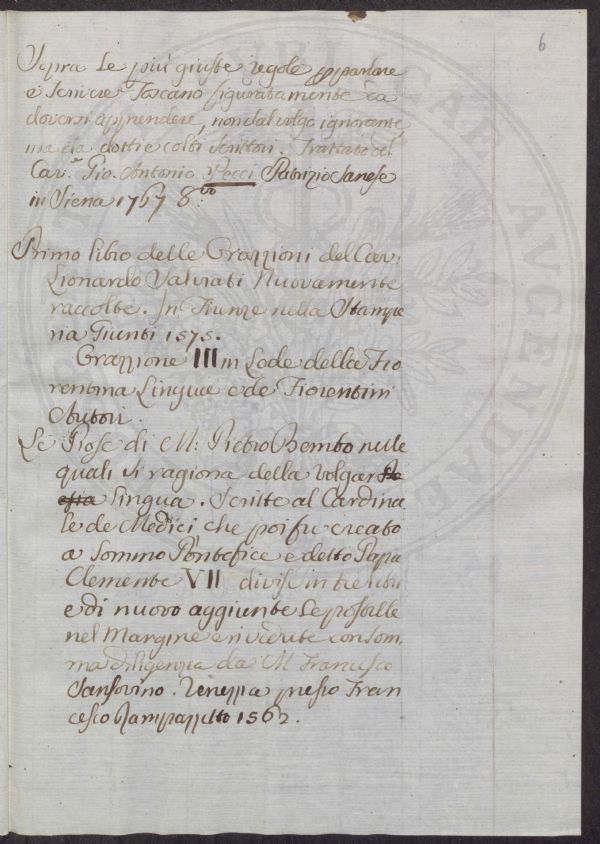 6
Sopra le più giuste regole per parlare
e scrivere Toscano figuratamente da
doversi apprendere, non dal volgo ignorante,
ma da dotti e colti Scrittori. Trattato del
Cav.e Gio. Antonio Pecci Patrizio Sanese
in Siena 1767 8.vo
Primo libro delle Orazzioni del Cav.
Lionardo Salviati Nuovamente
raccolte. In Firenze nella Stampe
ria Giunti 1575.
Orazzione III in Lode della Fio
rentina Lingua e de Fiorentini
Autori.
Le Prose di M: Pietro Bembo nelle
quali si ragiona della volgar
lingua. Scritte al Cardina
le de Medici che poi fu creato
a Sommo Pontefice e detto Papa
Clemente VII divise in tre libri
e di nuovo aggiunte le postille
nel Margine e rivedute con som
ma diligenza da M. Francesco
Sansovino. Venezzia presso Fran
cesco Rampazzetto 1562.